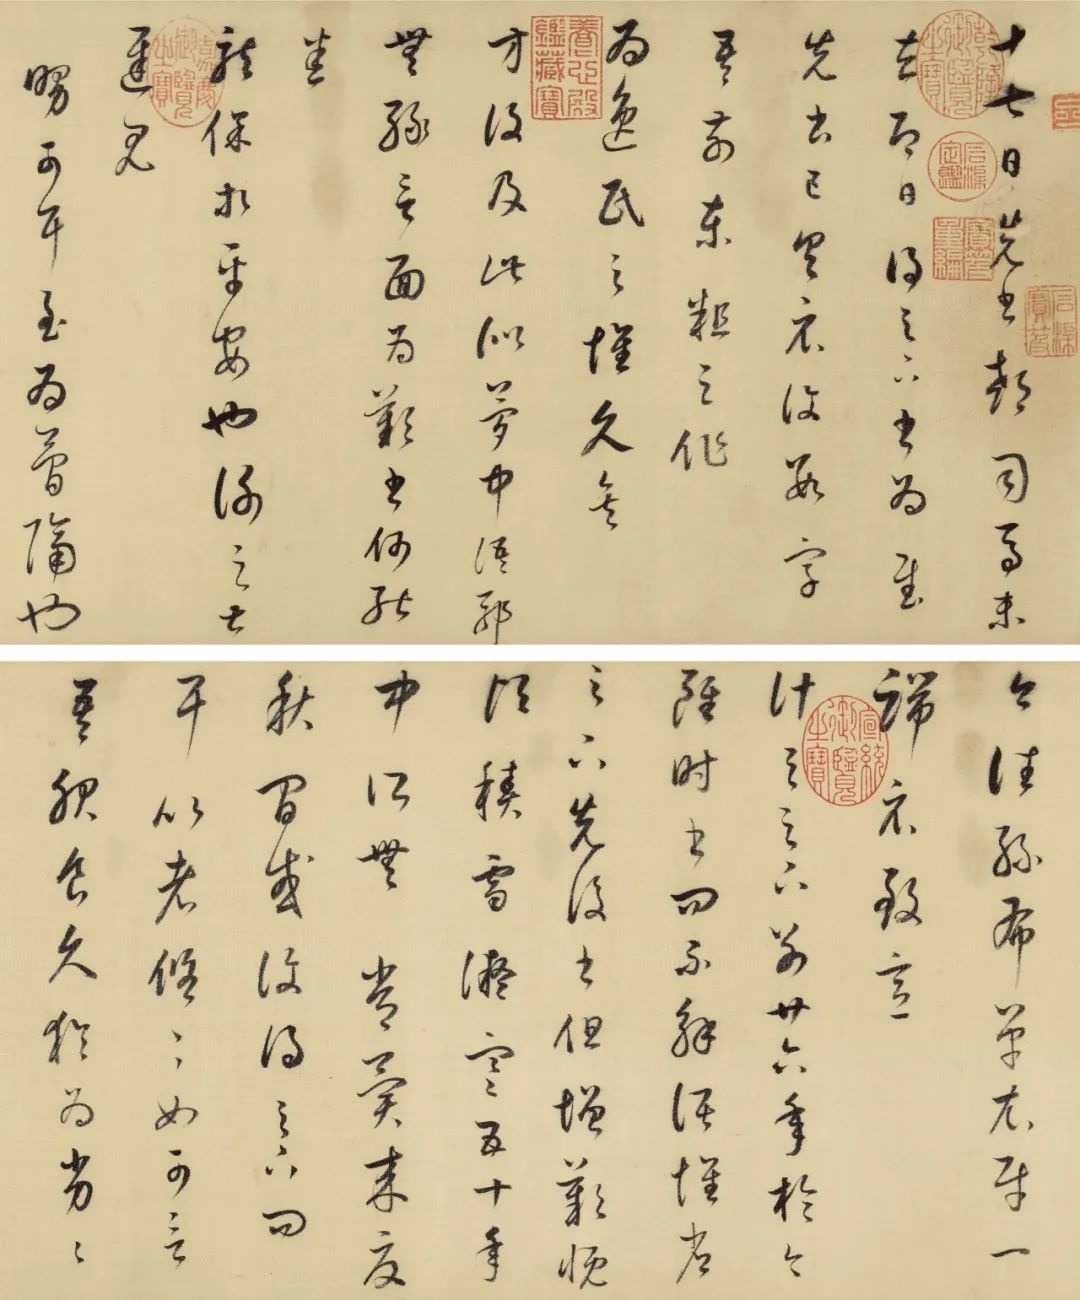 十七日先書郗司馬未
去即日得足下書為慰
先書已具示復數字
吾前東粗足作
為逸民之懷久矣
方復及此似夢中語耶
無緣言面為歎書何能
悉
龍保等平安也謝之甚
遲見
舅可耳至為簡隔也
今往絲布單衣財一
端示致意
計與足下別廿六年於今
雖時書問不解闊懷省
足下先後書但增歎慨
頃積雪凝寒五十年
中所無常冀來夏
秋間或復得足下問
耳比者悠悠如可言
吾服食久猶為劣劣
乾隆御覽之寶
石渠定鑑
寶笈重編
石渠寶笈
養心殿鑑藏寶
嘉慶御覽之寶
宣統御覽之寶